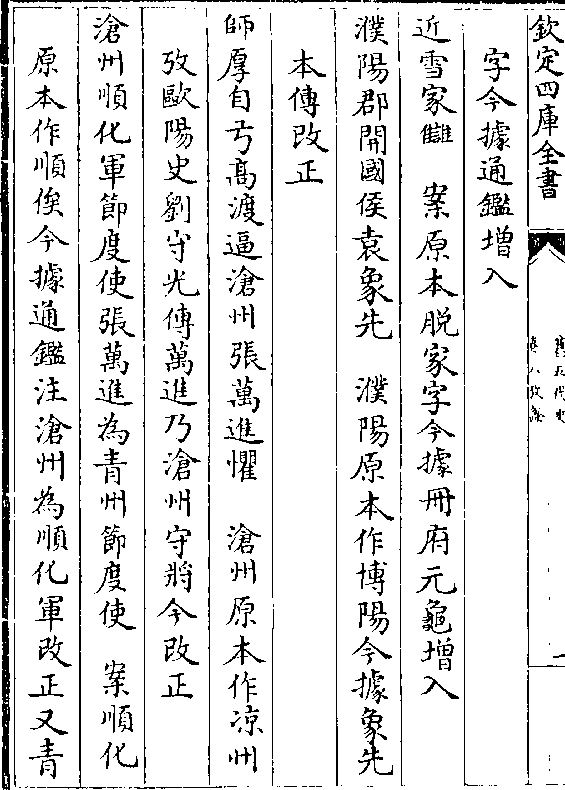 欽定四庫全書
舊五代史
卷八攷證
字今據通鑑增入
近雪家讎　案原本脫家字今據冊府元龜增入
濮陽郡開國侯袁象先　濮陽原本作博陽今據象先
本傳改正
師厚自弓高渡逼滄州張萬進懼　滄州原本作凉州
攷歐陽史劉守光傳萬進乃滄州守將今改正
滄州順化軍節度使張萬進為青州節度使　案順化
原本作順俟今據通鑑注滄州為順化軍改正又青